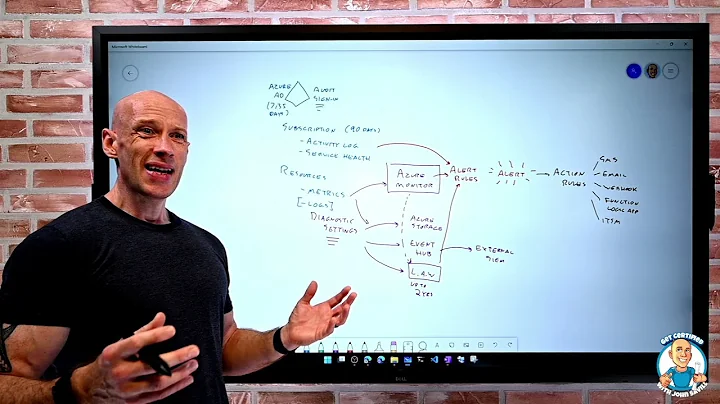 Microsoft Whiteboard
AZURE
AD
(7/35
DAYS)
AUDIT
SIGN-IN
SUBSCRIPTION (90 DAYS)
- ACTIVITY LOG
- SERVICE HEALTH
RESOURCES
- METRICS
[-LOGS]
DIAGNOSTIC
SETTINGS
AZURE
MONITOR
AZURE
STORAGE
EVENT
HUB
L.A.W
UP TO
2 YRS
ALERT
RULES
ALERT
ACTION
RULES
EXTERNAL
SIEM
SMS
EMAIL
WEBHOOK
FUNCTION
LOGIC APP
ITSM
DELL
GET CERTIFIED
WITH JOHN SAVILL